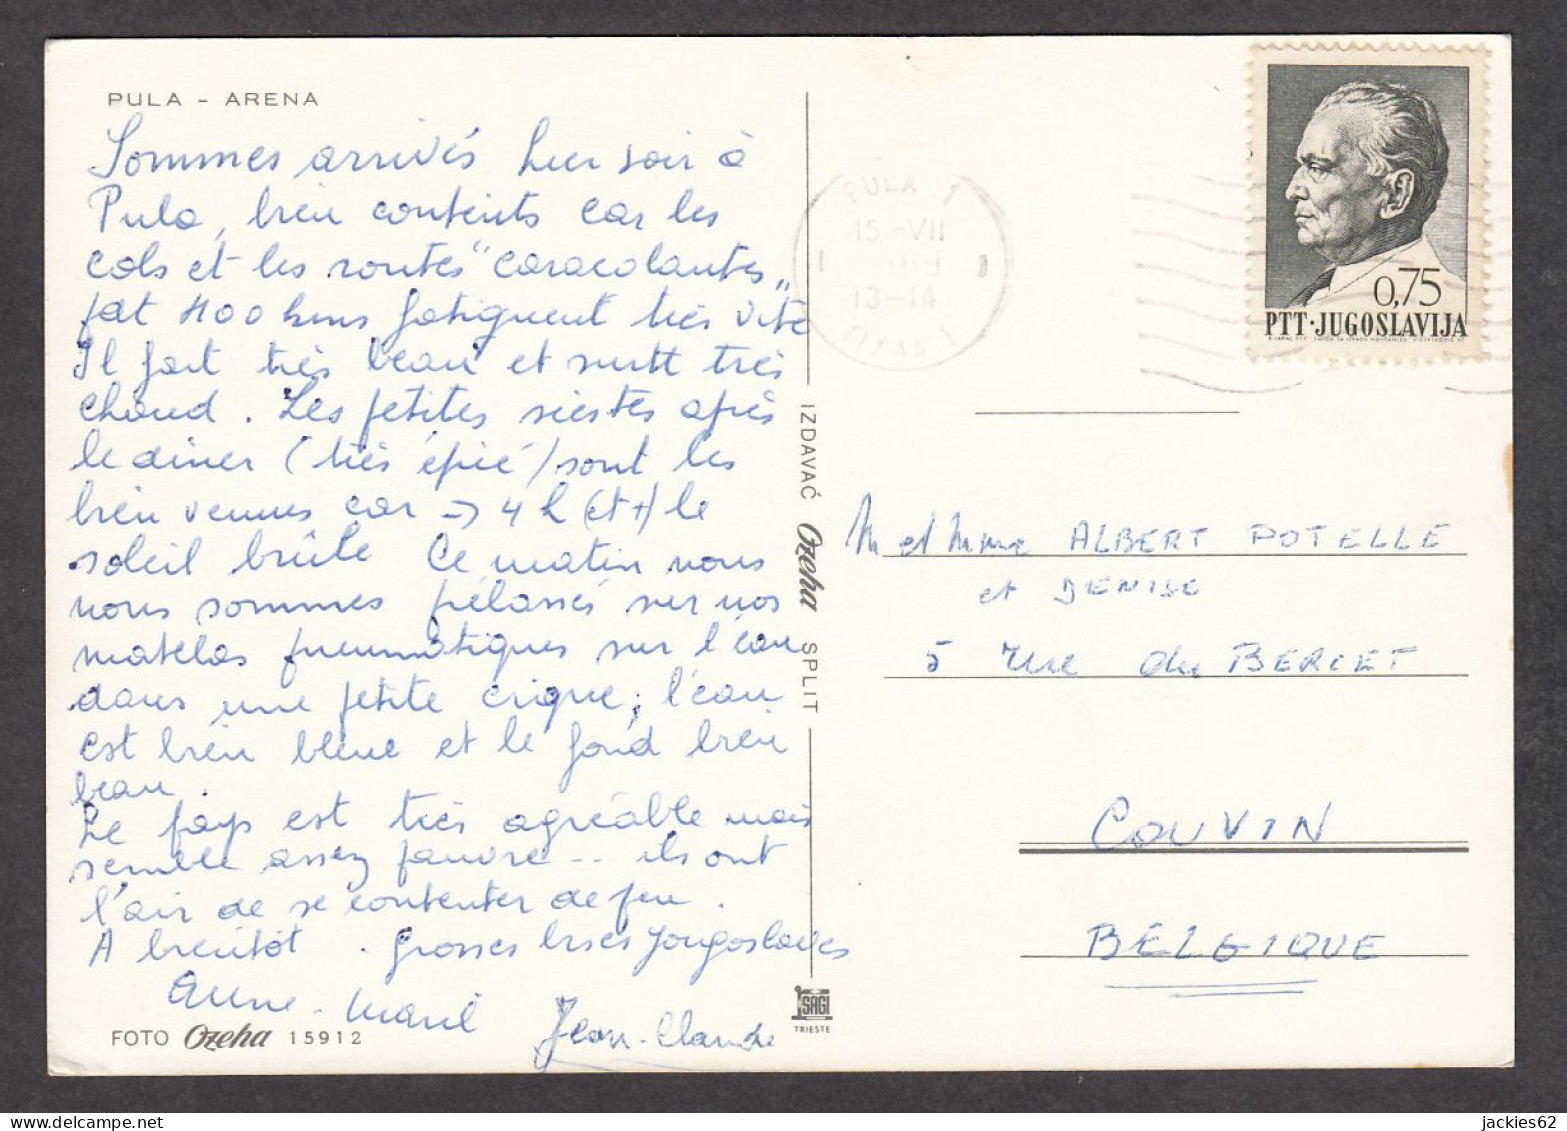 PULA - ARENA
Sommes arrivés hier soir à
Pula, bien contents car les
cols et les routes "caracolantes"
fat 400 kms fatiguent très vite
Il fait très beau et surtt très
chaud. Les petites siestes après
le diner (très épicé) sont les
bien venues car → 4 h (et +) le
soleil brûle Ce matin nous
nous sommes prélassés sur nos
matelas pneumatiques sur l'eau
dans une petite crique; l'eau
est bien bleue et le fond bien
beau.
Le pays est très agréable mais
semble assez pauvre -- ils ont
l'air de se contenter de peu.
A bientôt. Grosses bises Yougoslaves
Anne-Marie Jean-Claude
FOTO Ozeha 15912
IZDAVAČ Ozeha SPLIT
SAGI
TRIESTE
PULA 1
15-VII
13-14
ПУЛА 1
0,75
PTT·JUGOSLAVIJA
M et Mme ALBERT POTELLE
et DENISE
5 rue du BERCET
COUVIN
BELGIQUE
jackies62